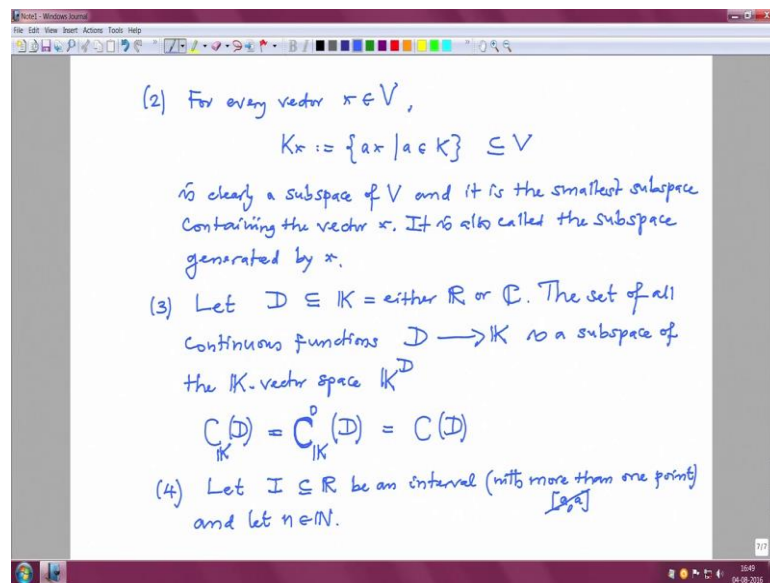 Note1 - Windows Journal
File Edit View Insert Actions Tools Help
(2) For every vector x ∈ V,
Kx := {ax | a ∈ K} ⊆ V
is clearly a subspace of V and it is the smallest subspace
containing the vector x. It is also called the subspace
generated by x.
(3) Let D ⊆ 𝕂 = either ℝ or ℂ. The set of all
continuous functions D → 𝕂 is a subspace of
the 𝕂-vector space 𝕂^D
C_𝕂(D) = C^0_𝕂(D) = C(D)
(4) Let I ⊆ ℝ be an interval (with more than one point)
[a,a]
and let n ∈ ℕ.
7/7
16:49
04-08-2016